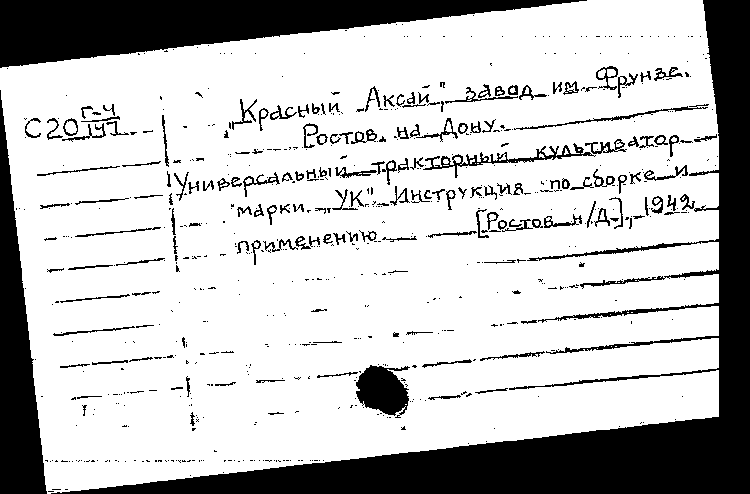 С20 Г-4
141
„Красный Аксай", завод им. Фрунзе.
Ростов на Дону.
Универсальный тракторный культиватор
марки „УК" Инструкция по сборке и
применению [Ростов н/Д.], 1942